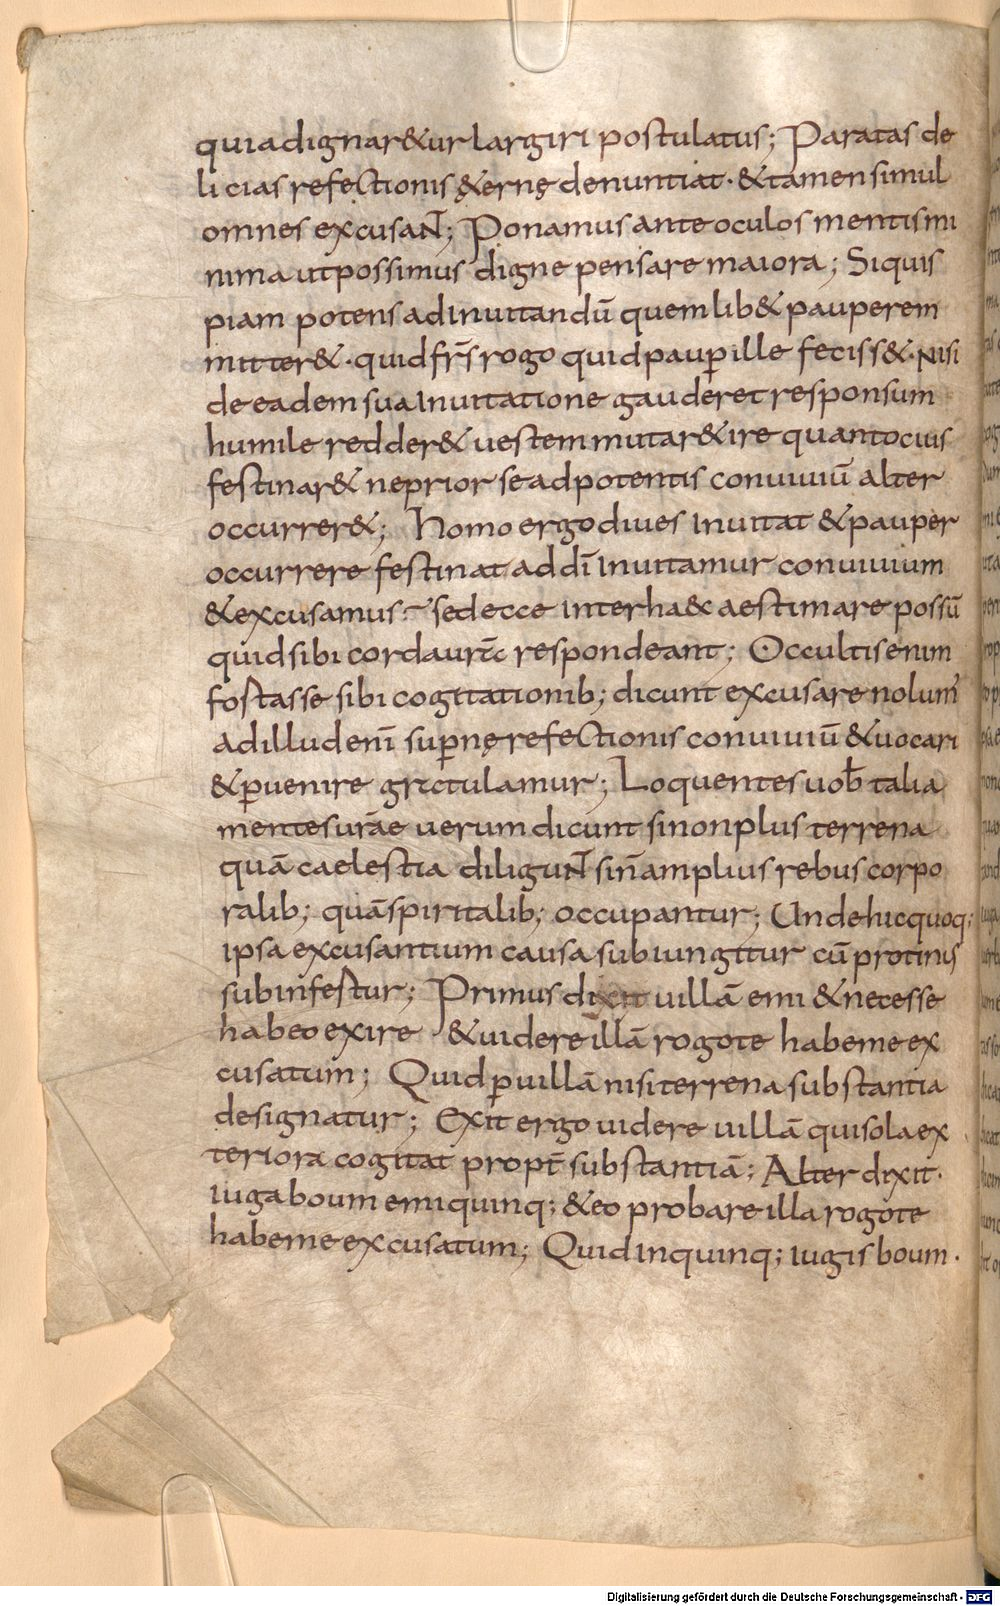 quia dignar&ur largiri postulatus; Paratas de
licias refectionis &ernę denuntiat · & tamen simul
omnes excusaNT̄; Ponamus ante oculos mentis mi
nima ut possimus digne pensare maiora; Si quis
piam potens ad inuitandū quemlib& pauperem
mitter& · quid fr̄s rogo quid paup̄ ille feciss& · Nisi
de eadem sua inuitatione gauderet responsum
humile redder& uestem mutar& ire quantocius
festinar& ne prior se ad potentis conuiuiū alter
occurrer&; homo ergo diues inuitat & pauper
occurrere festinat ad dī inuitamur conuiuium
& excusamus? sed ecce inter ha& aestimare possū
quid sibi corda ur̄a respondeant; Occultis enim
fostasse sibi cogitationib; dicunt excusare nolum̄
ad illud enī sup̄nę refectionis conuiuiū & uocari
& p̄uenire gratulamur; Loquentes uob̄ talia
mentes ur̄ae uerum dicunt si non plus terrena
quā caelestia diliguNT̄ si n̄ amplius rebus corpo
ralib; quā spiritalib; occupantur; Unde hic quoq;
ipsa excusantium causa subiungitur cū protinus
subinfestur; Primus dixit uillā emi & necesse
habeo exire & uidere illā rogo te habe me ex
cusatum; Quid p̄ uillā nisi terrena substantia
designatur; Exit ergo uidere uillā qui sola ex
teriora cogitat propt̄ substantiā; Alter dixit ·
iuga boum emi quinq; & eo probare illa rogo te
habe me excusatum; Quid in quinq; iugis boum ·
Digitalisierung gefördert durch die Deutsche Forschungsgemeinschaft - DFG